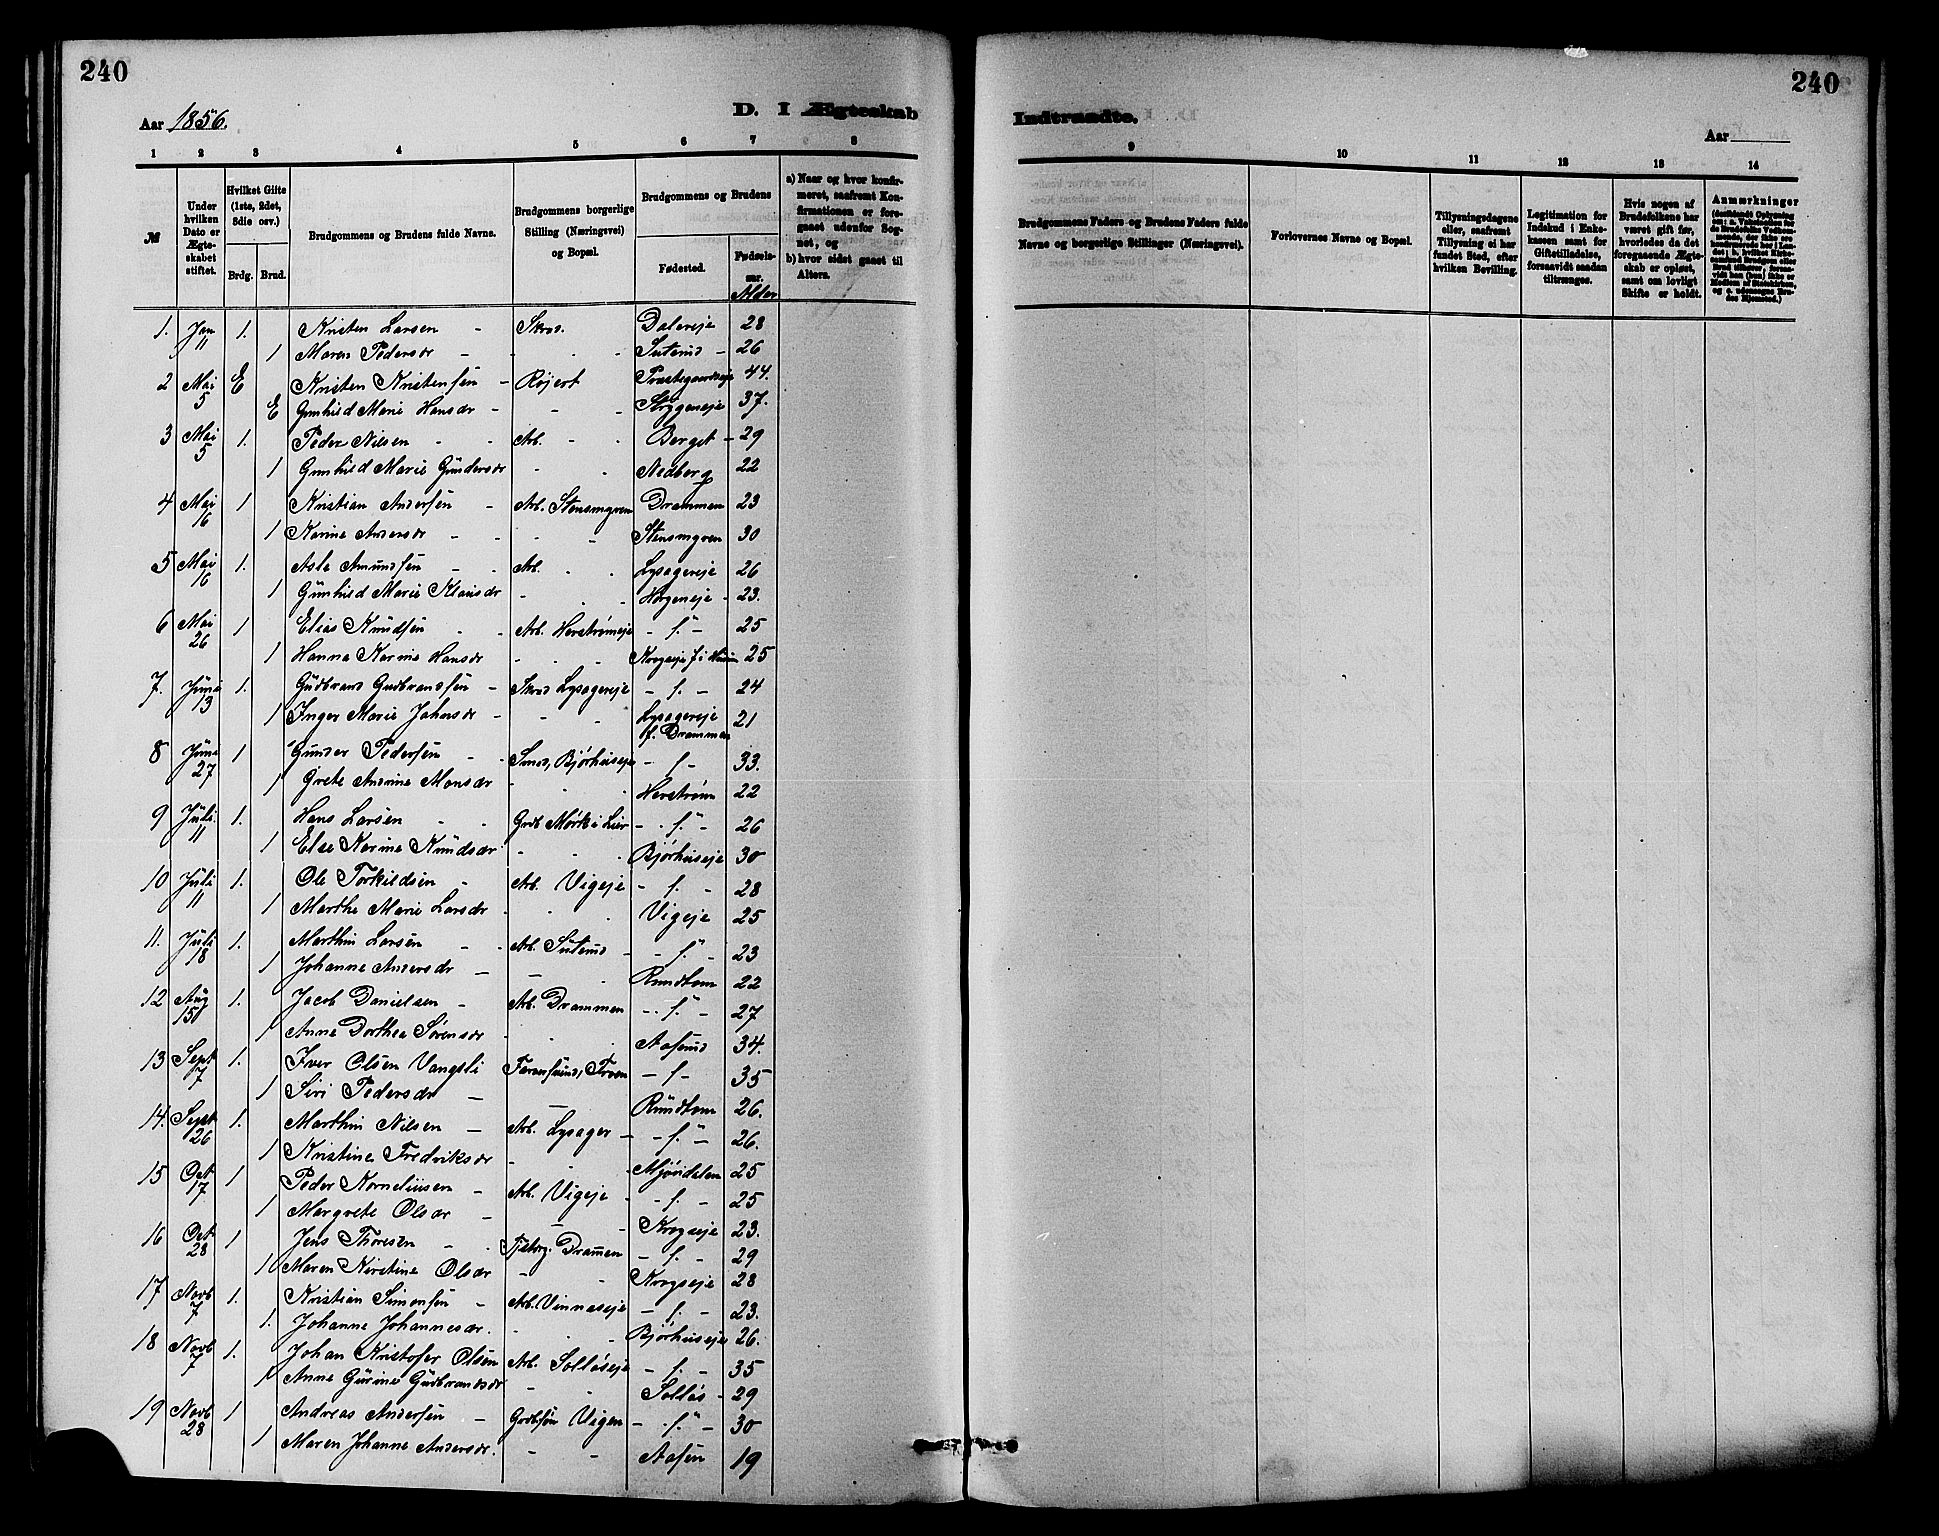 240
240
Aar 1856.
D. I Ægteskab
Indtraadte.
Aar
1 2 3 4 5 6 7 8
9 10 11 12 13 14
№
Under hvilken Dato er Ægteskabet stiftet.
Hvilket Gifte (1ste, 2det, 3die osv.)
Brdg. Brud.
Brudgommens og Brudens fulde Navne.
Brudgommens borgerlige Stilling (Næringsvei) og Bopæl.
Brudgommens og Brudens
Fødested.
Fødsels-aar. Alder
a) Naar og hvor konfirmeret, saafremt Konfirmationen er foregaaet udenfor Sognet, og
b) hvor sidst gaaet til Alters.
Brudgommens Faders og Brudens Faders fulde Navne og borgerlige Stillinger (Næringsvei).
Forlovernes Navne og Bopæl.
Tillysningsdagene eller, saafremt Tillysning ei har fundet Sted, efter hvilken Bevilling.
Legitimation for Indskud i Enkekassen samt for Giftetilladelse, forsaavidt saadan tiltrænges.
Hvis nogen af Brudefolkene har været gift før, hvorledes da det foregaaende Ægteskab er opløst, samt om lovligt Skifte er holdt.
Anmærkninger
1. Jan 11 1. Kristen Larsen - Skrd. Dalereje 28
1 Maren Pedersdr - Suterud - 26
2 Mai 5 E Kristen Kristensen - Røjert Præstegaardseje 44.
E Gunhild Marie Hansdr - Stryggeneje 37.
3 Mai 5 1. Peder Nilsen - Arb. Berget - 29
1 Gunhild Marie Gundersdr Nedberg 22
4 Mai 16 1 Kristian Andersen - Arb. Stensmgren Drammen 23
1 Karine Andersdr - Stensmgren 30
5 Mai 16 1. Asle Amundsen - Arb. Lysagereje 26
1 Gunhild Marie Klausdr Horgeneje - 23.
6 Mai 26 1 Elias Knudsen - Arb. Herstrømeje - f. - 25
1 Hanna Karine Hansdr Krogseje 25
7. Juni 13 1. Gudbrand Gudbrandsen - Skrd Lysagereje - f. - 24
1 Inger Marie Johnsdr - Lysagereje bf. Drammen 21
8 Juni 27 1 Gunder Pedersen - Smed, Bjørhuseje - f - 33.
1 Grete Andrine Monsdr Herstrøm 22
9 Juli 11 1. Hans Larsen - Grdb Mørk i Lier - f. - 26
1 Else Karine Knudsdr Bjørhuseje 30
10 Juli 11 1. Ole Torkildsen - Arb. Vigeje - f. - 28
1 Marthe Marie Larsdr Vigeje 25
11. Juli 18 1. Marthin Larsen - Arb. Suterud - f. - 23
1 Johanne Andersdr - Rundtom 22
12 Aug 15 1. Jacob Danielsen - Arb. Drammen - f. - 27
1 Anne Dorthea Sørensdr Aaserud 34.
13 Sept 7 1. Iver Olsen Vangsli - f - 35
1 Siri Pedersdr - Rundtom 26.
14. Sept 26 1. Marthin Nilsen - Arb. Lysager - f. - 26.
1 Kristine Fredriksdr - Mjøndalen 25
15 Oct 17 1 Peder Korneliusen - Arb. Vigeje - f. - 25
1 Margrete Olsdr - Krogseje 23.
16 Oct 28 1 Jens Thoresen - Drammen - f. - 29
1 Maren Kirstine Olsdr - Krogseje 28
17 Novb 7 1. Kristian Simonsen - Arb. Vinnaseje - f. - 23.
1. Johanne Johannesdr. - Bjørhuseje 26.
18 Novb 7 1. Johan Kristofer Olsen Arb. Solløseje - f. - 35
1 Anne Gurine Gudbrandsdr - Solløs - 29
19 Novb 28 1 Andreas Andersen - Grdbsøn Vigen - f. - 30
1 Maren Johanne Andersdr. - Aasen 19